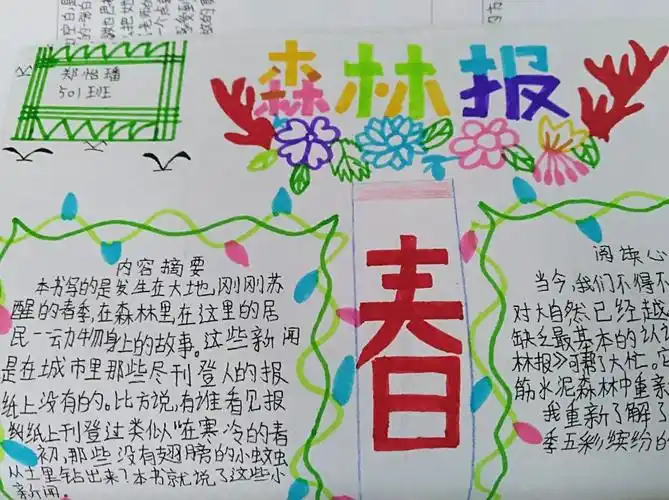 郑怡璠
501班
森林报
春
内容摘要
本书写的是发生在大地,刚刚苏
醒的春季,在森林里,在这里的居
民一一动物身上的故事。这些新闻
是在城市里那些尽刊登人的报
纸上没有的。比方说,有谁看见报
纸上刊登过类似“在寒冷的春
初,那些没有翅膀的小蚊虫
从土里钻出来?本书就说了这些小
新闻。
阅读心
当今,我们不得不
对大自然已经越
缺乏最基本的认
林报》可帮了大忙。
筋水泥森林中重新
我重新了解
季五彩缤纷的